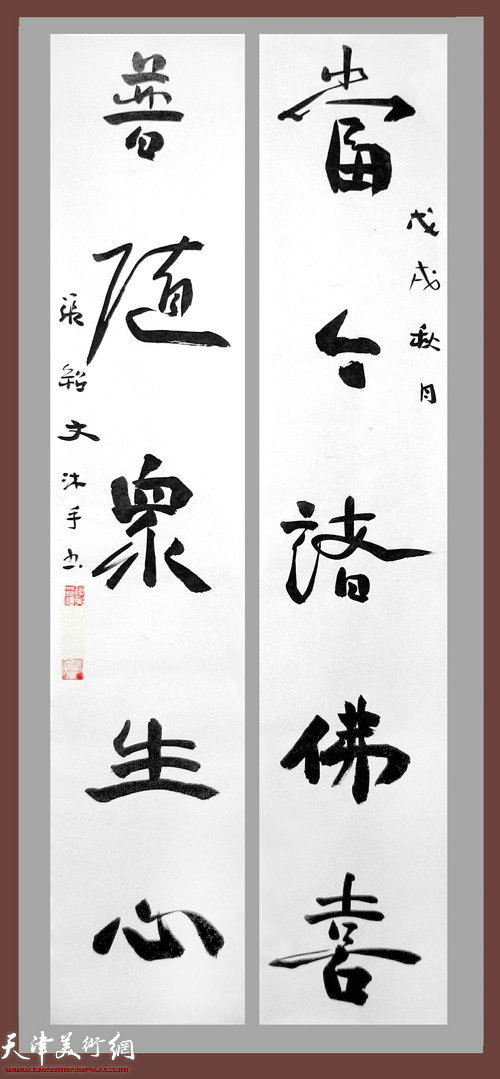 當令諸佛喜
戊戌秋月
普隨衆生心
張紹文沐手书
天津美術網
www.022meishu.com